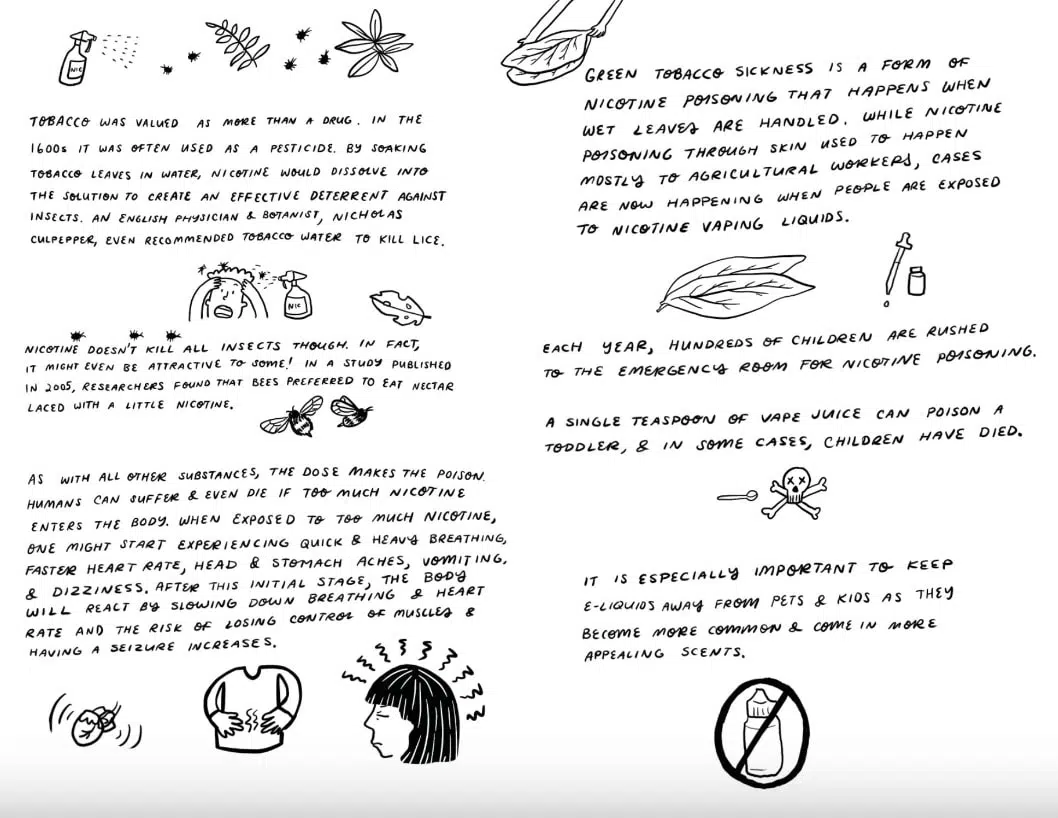 NIC
TOBACCO WAS VALUED AS MORE THAN A DRUG. IN THE
1600s IT WAS OFTEN USED AS A PESTICIDE. BY SOAKING
TOBACCO LEAVES IN WATER, NICOTINE WOULD DISSOLVE INTO
THE SOLUTION TO CREATE AN EFFECTIVE DETERRENT AGAINST
INSECTS. AN ENGLISH PHYSICIAN & BOTANIST, NICHOLAS
CULPEPPER, EVEN RECOMMENDED TOBACCO WATER TO KILL LICE.
NIC
NICOTINE DOESN'T KILL ALL INSECTS THOUGH. IN FACT,
IT MIGHT EVEN BE ATTRACTIVE TO SOME! IN A STUDY PUBLISHED
IN 2005, RESEARCHERS FOUND THAT BEES PREFERRED TO EAT NECTAR
LACED WITH A LITTLE NICOTINE.
AS WITH ALL OTHER SUBSTANCES, THE DOSE MAKES THE POISON.
HUMANS CAN SUFFER & EVEN DIE IF TOO MUCH NICOTINE
ENTERS THE BODY. WHEN EXPOSED TO TOO MUCH NICOTINE,
ONE MIGHT START EXPERIENCING QUICK & HEAVY BREATHING,
FASTER HEART RATE, HEAD & STOMACH ACHES, VOMITING,
& DIZZINESS. AFTER THIS INITIAL STAGE, THE BODY
WILL REACT BY SLOWING DOWN BREATHING & HEART
RATE AND THE RISK OF LOSING CONTROL OF MUSCLES &
HAVING A SEIZURE INCREASES.
GREEN TOBACCO SICKNESS IS A FORM OF
NICOTINE POISONING THAT HAPPENS WHEN
WET LEAVES ARE HANDLED. WHILE NICOTINE
POISONING THROUGH SKIN USED TO HAPPEN
MOSTLY TO AGRICULTURAL WORKERS, CASES
ARE NOW HAPPENING WHEN PEOPLE ARE EXPOSED
TO NICOTINE VAPING LIQUIDS.
EACH YEAR, HUNDREDS OF CHILDREN ARE RUSHED
TO THE EMERGENCY ROOM FOR NICOTINE POISONING.
A SINGLE TEASPOON OF VAPE JUICE CAN POISON A
TODDLER, & IN SOME CASES, CHILDREN HAVE DIED.
IT IS ESPECIALLY IMPORTANT TO KEEP
E-LIQUIDS AWAY FROM PETS & KIDS AS THEY
BECOME MORE COMMON & COME IN MORE
APPEALING SCENTS.